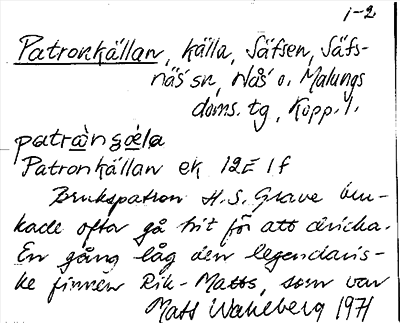 1-2
Patronkällan, källa, Säfsen, Säfs-
näs sn, Nås o. Malungs
doms. tg, Kopp. l.
patrànçǝ̀la
Patronkällan ek 12E 1f
Brukspatron H.S. Grave bru-
kade ofta gå hit för att dricka.
En gång låg den legendaris-
ke finnen Rik-Matts, som var
Mats Wahlberg 1971